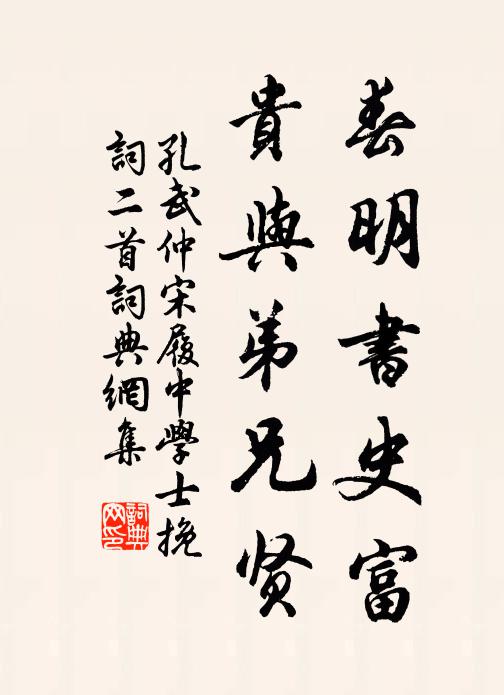 春明書史富
貴與弟兄贤
孔武仲宋履中學士挽
詞二首詞典網集
詞典
网印